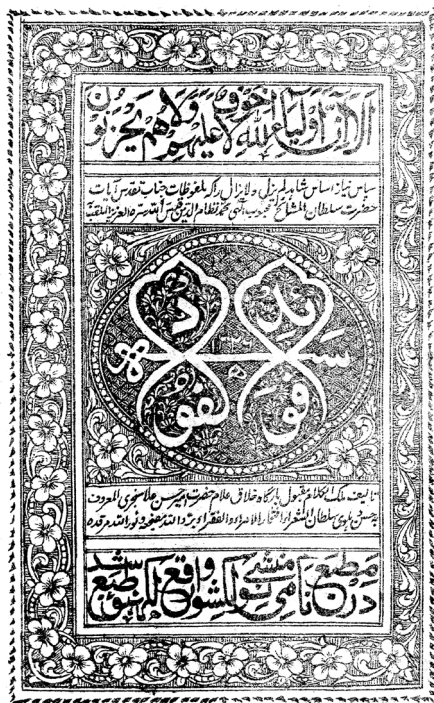 الا ان اولیاء الله لا خوف علیهم ولا هم یحزنون
سپاس نیاز اساس شاہد لم یزل و لا یزال را کہ ملفوظات جناب تقدس آیات
حضرت سلطان المشائخ محبوب الہی محمد نظام الدین قدس اللہ سرہ العزیز الملقب بہ
فوائد الفواد
تالیف ملک الکلام مقبول بارگاہ خلاق علام حضرت امیر حسن علا سنجری المعروف
بہ حسن دہلوی سلطان الشعراء افتخار الامراء و الفقراء برد اللہ مضجعہ و نور اللہ مرقدہ
در مطبع نامی منشی نولکشور واقع لکھنؤ طبع شد